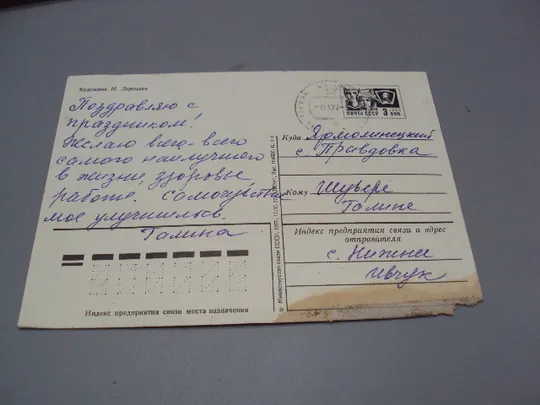 Художник И. Дергилев
Поздравляю с
праздником!
Желаю всего-всего
самого наилучшего
в жизни, здоровье
работе. Самочувствие
мое улучшилось.
Галина
Индекс предприятия связи места назначения
Министерство связи СССР, 1977
ПОЧТА СССР
3
КОП.
Куда Ярмолинецкий
с. Правдовка
Кому Шувере
Галине
Индекс предприятия связи и адрес
отправителя
с. Нижнее
Ивчук